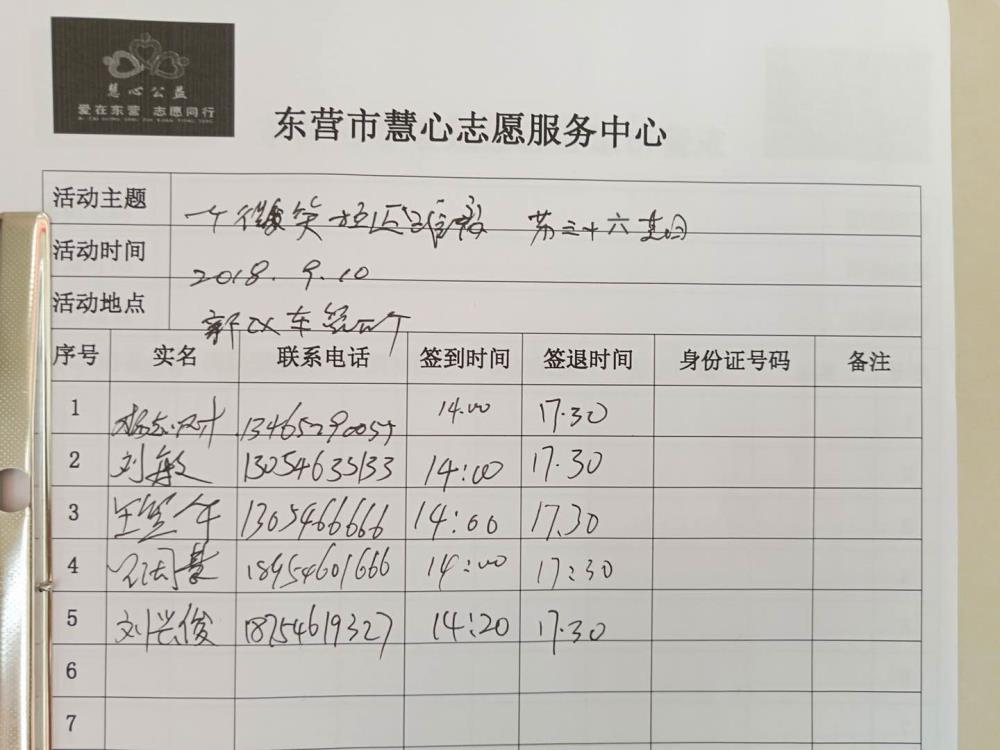 慧心公益
爱在东营 志愿同行
东营市慧心志愿服务中心
活动主题 一个微笑 第三十六
活动时间 2018.9.10
活动地点 车
序号 实名 联系电话 签到时间 签退时间 身份证号码 备注
1 13465290057 14:00 17.30
2 刘敏 13054635133 14:00 17.30
3 1305466666 14:00 17.30
4 18954601666 14:00 17:30
5 刘兴俊 18754619327 14:20 17.30
6
7